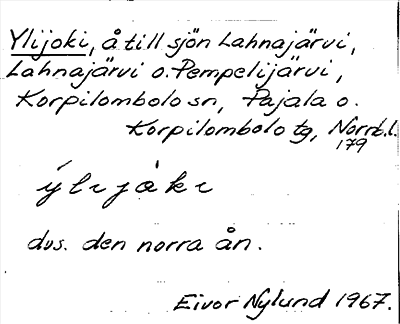 Ylijoki, å till sjön Lahnajärvi,
Lahnajärvi o. Pempelijärvi,
Korpilombolo sn, Pajala o.
Korpilombolo tg, Norrb.l.
179
ýlɩjåkɩ
dvs. den norra ån.
Eivor Nylund 1967.